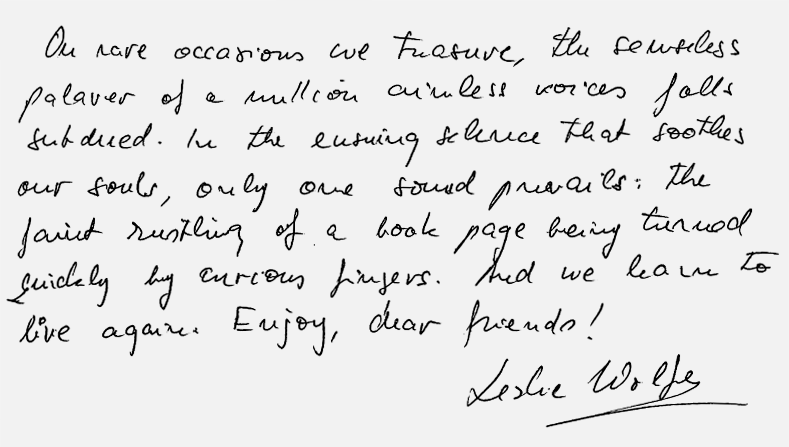 On rare occasions we treasure, the senseless
palaver of a million aimless voices falls
subdued. In the ensuing silence that soothes
our souls, only one sound prevails: the
faint rustling of a book page being turned
quickly by curious fingers. And we learn to
live again. Enjoy, dear friends!
Leslie Wolfe